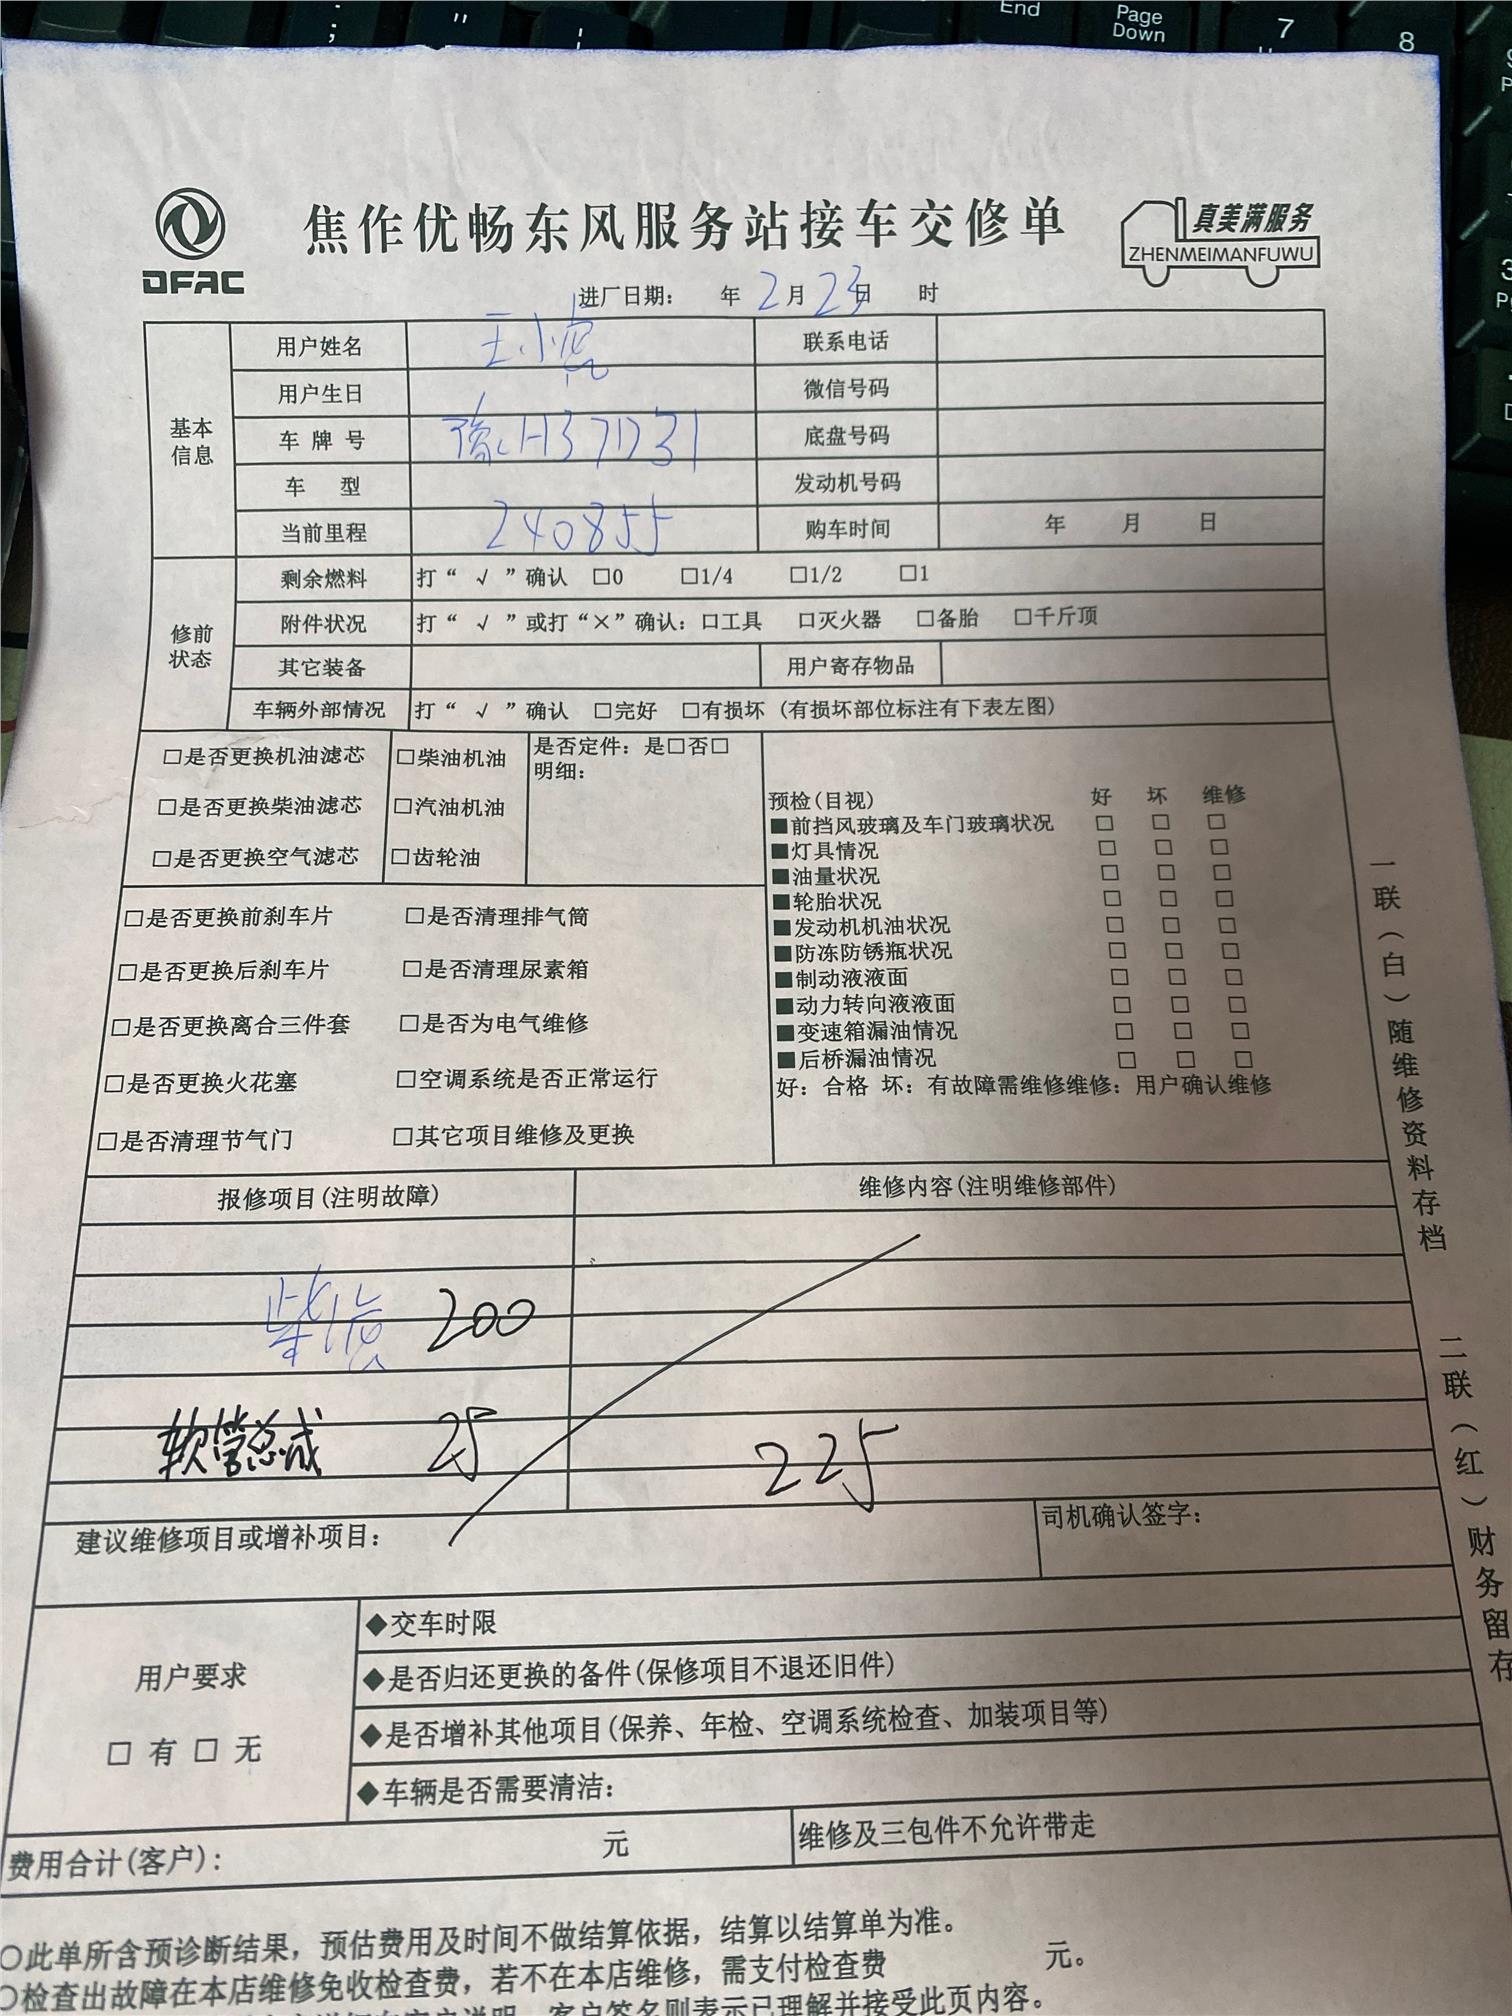 End
Page
Down
7
8
;
"
DFAC
焦作优畅东风服务站接车交修单
真美满服务
ZHENMEIMANFUWU
进厂日期： 年 2 月 23 日 时
基本信息
用户姓名 王小虎 联系电话
用户生日 微信号码
车牌号 豫H37D31 底盘号码
车型 发动机号码
当前里程 240855 购车时间 年 月 日
修前状态
剩余燃料 打“√”确认 □0 □1/4 □1/2 □1
附件状况 打“√”或打“×”确认：□工具 □灭火器 □备胎 □千斤顶
其它装备 用户寄存物品
车辆外部情况 打“√”确认 □完好 □有损坏（有损坏部位标注有下表左图）
□是否更换机油滤芯 □柴油机油
□是否更换柴油滤芯 □汽油机油
□是否更换空气滤芯 □齿轮油
是否定件：是□否□
明细：
□是否更换前刹车片 □是否清理排气筒
□是否更换后刹车片 □是否清理尿素箱
□是否更换离合三件套 □是否为电气维修
□是否更换火花塞 □空调系统是否正常运行
□是否清理节气门 □其它项目维修及更换
预检(目视) 好 坏 维修
■前挡风玻璃及车门玻璃状况 □ □ □
■灯具情况 □ □ □
■油量状况 □ □ □
■轮胎状况 □ □ □
■发动机机油状况 □ □ □
■防冻防锈瓶状况 □ □ □
■制动液液面 □ □ □
■动力转向液液面 □ □ □
■变速箱漏油情况 □ □ □
■后桥漏油情况 □ □ □
好：合格 坏：有故障需维修维修：用户确认维修
报修项目(注明故障) 维修内容(注明维修部件)
200
软管总成 25
225
建议维修项目或增补项目：
司机确认签字：
用户要求
□ 有 □ 无
◆交车时限
◆是否归还更换的备件(保修项目不退还旧件)
◆是否增补其他项目(保养、年检、空调系统检查、加装项目等)
◆车辆是否需要清洁：
费用合计(客户)： 元
维修及三包件不允许带走
○此单所含预诊断结果，预估费用及时间不做结算依据，结算以结算单为准。
○检查出故障在本店维修免收检查费，若不在本店维修，需支付检查费 元。
客户签名则表示已理解并接受此页内容。
一联（白）随维修资料存档
二联（红）财务留存